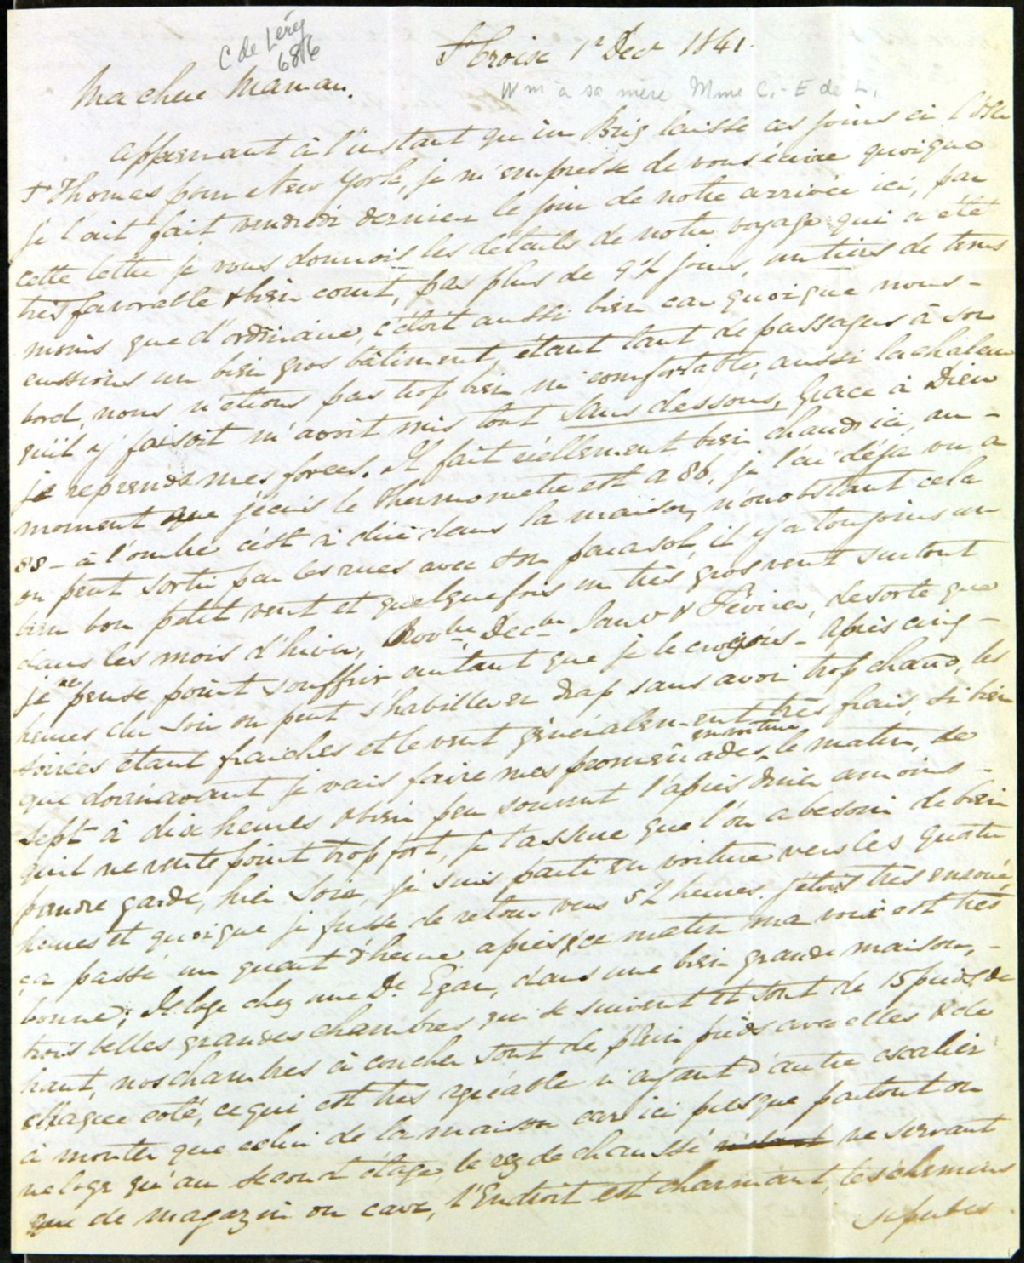 C de Léry
6816
St Croix 1r Decr 1841.
Wm à sa mère Mme C.-E de L.
Ma chere Maman.
Apprenant à l'instant qu'un Brig laisse ces jours ci l'Isle
St Thomas pour New York, je m'empresse de vous écrire quoique
je l'ait fait vendredi dernier le jour de notre arrivée ici, par
cette lettre je vous donnois les détails de notre voyage qui a été
très favorable & bien court, pas plus de 9½ jours, un tiers de tems
moins que d'ordinaire, c'étoit aussi bien car quoique nous -
eussions un bien gros bâtiment, étant tant de passagers à son
bord, nous n'étions pas trop bien ni comfortable, aussi la chaleur
qu'il y faisoit m'avoit mis tout sans dessous, Grace à Dieu
je reprends mes forces. Il fait réellement bien chaud ici, au -
moment que j'écris le Thermometre est a 86, je l'ai déjà vu, a
88 - à l'ombre c'est à dire dans la maison, nonobstant cela
on peut sortir par les rues avec son parasol, il y a toujours un
bien bon petit vent et quelquefois un très gros vent surtout
dans les mois d'hiver, Novbre Decbre Janv & Fevrier, de sorte que
je ne pense point souffrir autant que je le croyois - Après cinq -
heures du soir on peut s'habiller en drap sans avoir trop chaud, les
soirées étant fraiches et le vent généralement très frais, si bien
que dorénavant je vais faire mes promenades en voiture le matin, de
sept à dix heures & bien peu souvent l'après diner a moins -
qu'il ne vente point trop fort, je t'assure que l'on a besoin de bien
prendre garde, hier soir, je suis parti en voiture vers les quatre
heures et quoique je fusse de retour vers 5½ heures j'etois très enroué
ça passé un quart d'heure après, ce matin ma voix est très
bonne; Je loge chez une De Egan, dans une bien grande maison, -
trois belles grandes chambres qui se suivent et sont de 15 pieds de
haut, nos chambres à coucher sont de plein pieds avec elles & de
chaque coté, ce qui est très agréable n'ayant d'autre escalier
à monter que celui de la maison car ici presque partout on
ne loge qu'au second étage, le rez de chaussé ne servant
que de magazin ou cave, l'Endroit est charmant, les chemins
superbes